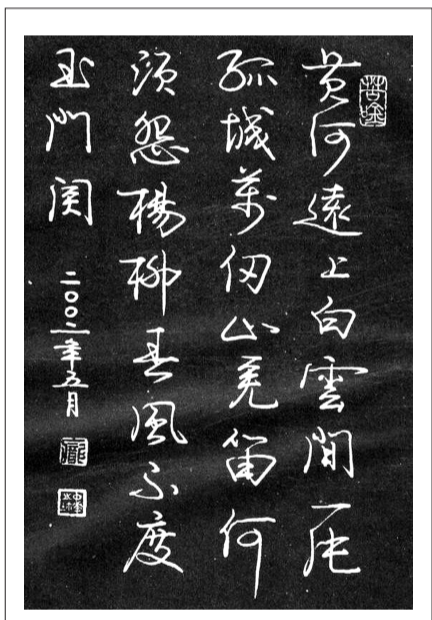 黄河遠上白雲間一片
孤城萬仞山羌笛何
須怨楊柳春風不度
玉門関
二〇〇二年五月